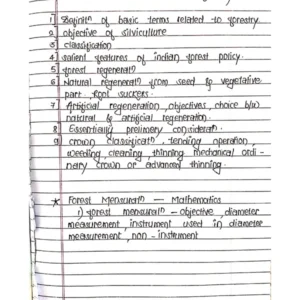 1) Definitn of basic terms related to forestry.
2 objective of silviculture
3 classification
4) salient features of indian forest policy.
5) forest regeneratn
6 Natural regeneratn from seed & vegetative
part, root suckers.
7) Artificial regeneration, objectives, choice b/w
natural & artificial regeneration.
8 Essentially prelimery consideratn.
9) crown classificatn, tending operation,
weeding, cleaning, thinning mechanical ordi-
nary crown or advanced thinning.
* Forest Measuratn — Mathematics
1) forest mensuratn - objective, diameter
measurement, instrument used in diameter
measurement, non - instrument